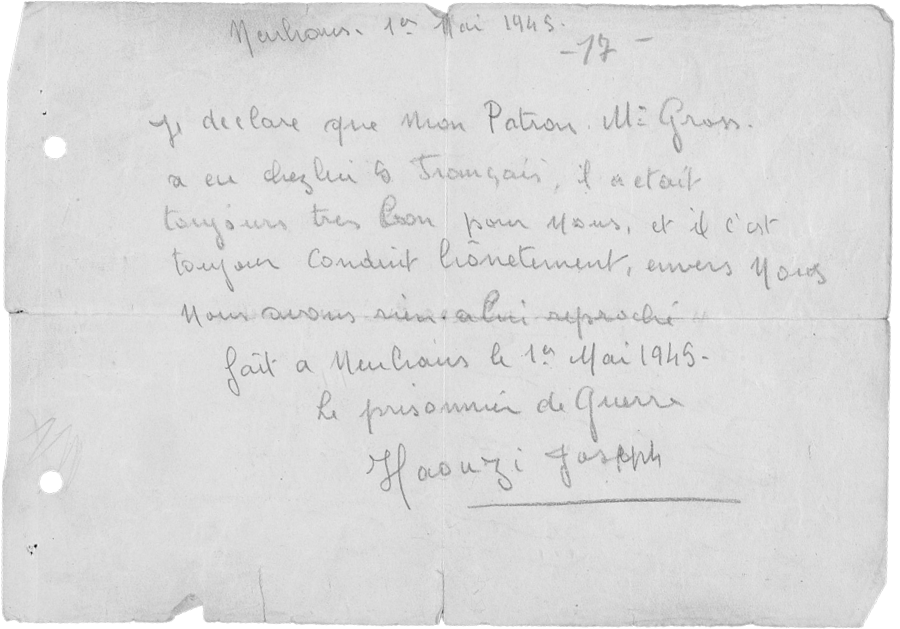 Neuhaus. 1er Mai 1945.
-17-
Je declare que mon Patron. Mr Gross.
a eu chez lui 6 Français, il a etait
toujours tres bon pour nous, et il c'est
toujour conduit hônetement, envers nous
nous avons rien a lui reproché
fait a Neuhaus le 1er Mai 1945-
Le prisonnier de Guerre
Haouzi Joseph